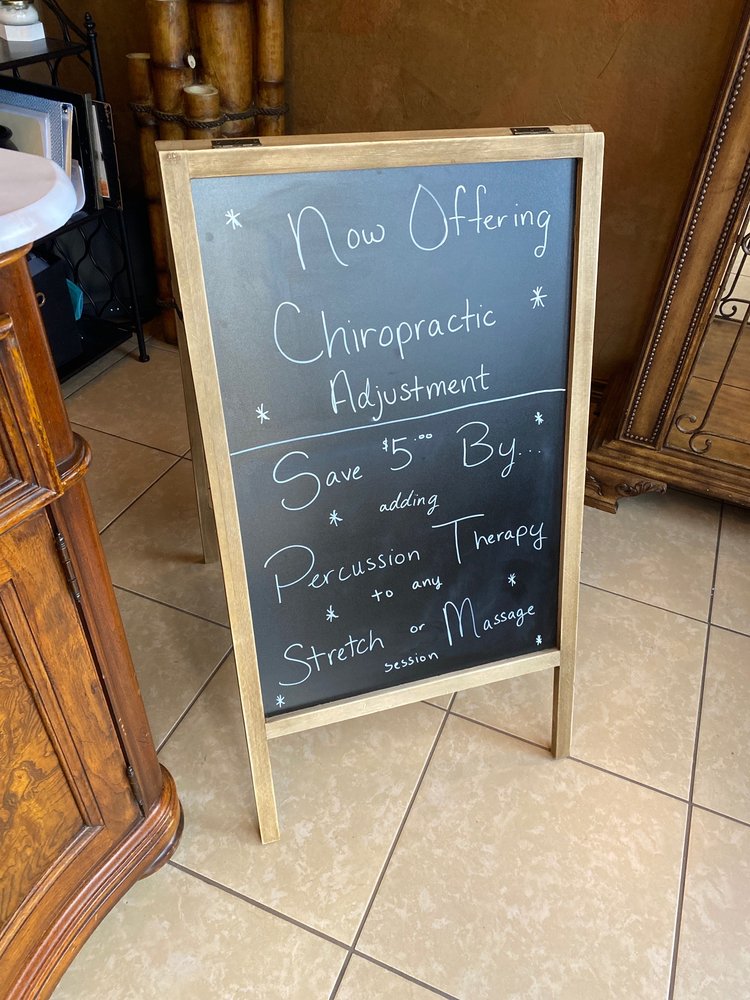 * Now Offering
Chiropractic *
* Adjustment
Save $5.00 By... *
* adding
Percussion Therapy
* to any *
Stretch or Massage
* session *